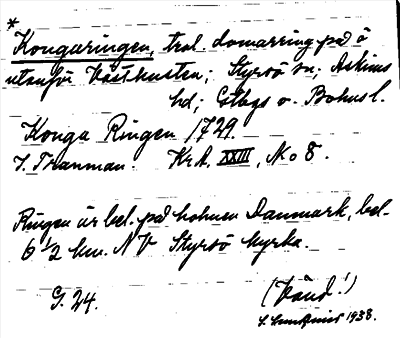 *
Kongaringen, trol. domarring på ö
utanför Västkusten; Styrsö sn; Askims
hd; Gtbgs o. Bohus l.
Konga Ringen 1729.
J. Tranman. KrA. XXIII, No 8.
Ringen är bel. på holmen Danmark, bel.
6 1/2 km. NV Styrsö kyrka.
G. 24. (Vänd!)
1938.